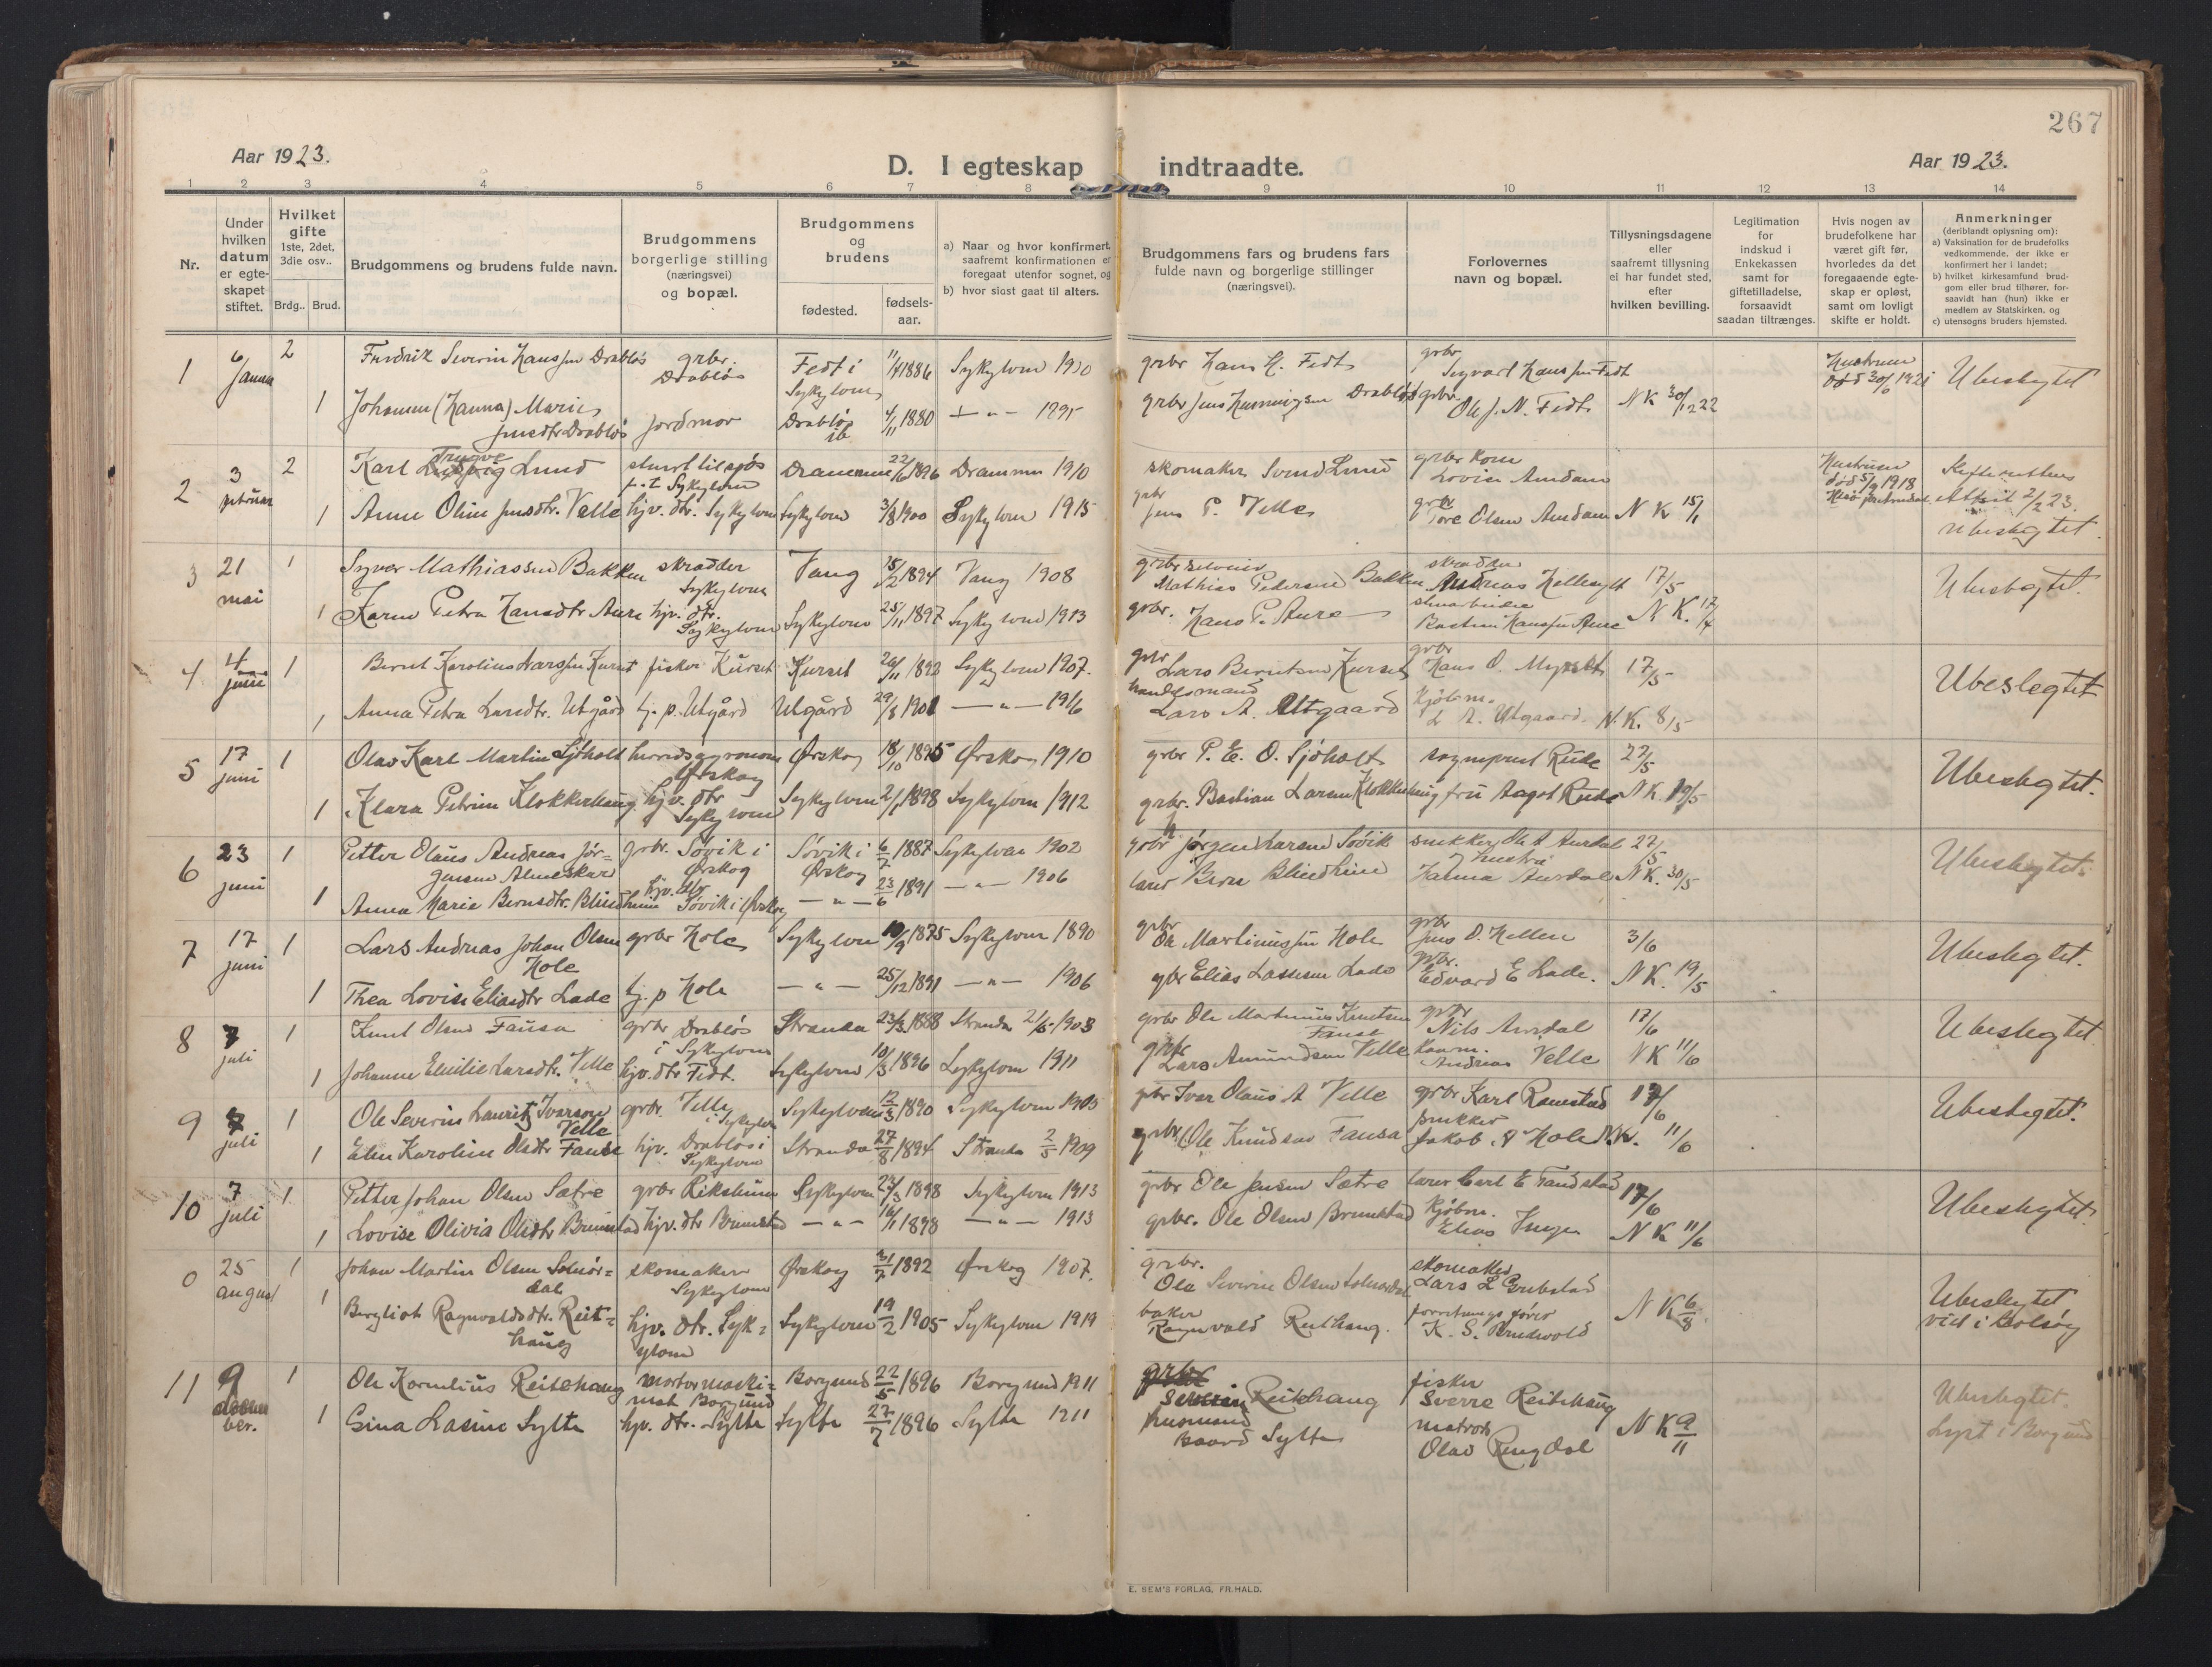 267
Aar 1923.
D. I egteskap indtraadte.
Aar 1923.
1 2 3 4 5 6 7 8 9 10 11 12 13 14
Nr.
Under hvilken datum er egte-skapet stiftet.
Hvilket gifte
1ste, 2det, 3die osv..
Brdg.. Brud.
Brudgommens og brudens fulde navn.
Brudgommens borgerlige stilling (næringsvei) og bopæl.
Brudgommens og brudens
fødested.
fødsels-aar.
a) Naar og hvor konfirmert, saafremt konfirmationen er foregaat utenfor sognet, og
b) hvor sidst gaat til alters.
Brudgommens fars og brudens fars fulde navn og borgerlige stillinger (næringsvei).
Forlovernes navn og bopæl.
Tillysningsdagene eller saafremt tillysning ei har fundet sted, efter hvilken bevilling.
Legitimation for indskud i Enkekassen samt for giftetilladelse, forsaavidt saadan tiltrænges.
Hvis nogen av brudefolkene har været gift før, hvorledes da det foregaaende egte-skap er opløst, samt om lovligt skifte er holdt.
Anmerkninger
(deriblandt oplysning om):
a) Vaksination for de brudefolks vedkommende, der ikke er konfirmert her i landet;
b) hvilket kirkesamfund brud-gom eller brud tilhører, for-saavidt han (hun) ikke er medlem av Statskirken, og
c) utensogns bruders hjemsted.
1 6 2 Fredrik Severin Hanssen Drabløs grbr. Drabløs Fedt i Sykylven 1886 Sykylven 1900 grbr Hans H. Fedt grbr Sigvart Hanssen Fedt Hustruen død 30/6 1921 Ubeslegtet
1 Johanne (Hanna) Marie Jensdtr Drabløs jordmor Drabløs ib 4/11 1880 — " — 1895 grbr Jens Henningsen Drabløs grbr. Ole J. N. Fedt NK 30/12 22
2 3 februar 2 Karl Trygve Lund p.t. Sykylven Drammen 22/6 1896 Drammen 1910 skomaker Svend Lund grbr Lovise Aurdam Hustruen død 5/9 1918 Attest 2/2 23.
1 Anne Oline Jensdtr. Velle hjv. dtr. Sykylven Sykylven 3/8 1900 Sykylven 1915 grbr Jens P. Velle grbr Tore Olsen Aurdam N K 15/1 Ubeslegtet.
3 21 mai 1 Syver Mathiassen Bakken skrædder Sykylven Vang 15/2 1894 Vang 1908 Mathias Pedersen Bakken skrædder Andreas Hellesylt 17/5 Ubeslegtet.
1 Karen Petra Hansdtr Aure hjv. dtr. Sykylven Sykylven 25/11 1897 Sykylven 1913 grbr. Hans P. Aure Bastian Hanssen Aure N K. 17/4
4 4 juni 1 Bernt Karolius Larssen Kurset fisker Kurset Kurset 26/11 1892 Sykylven 1907. grbr Lars Berntsen Kurset grbr Hans O. Myrseth 17/5 Ubeslegtet
1 Anna Petra Larsdtr. Utgård tj. p. Utgård Utgård 29/8 1901 — " — 1916 handelsmand Lars A. Utgaard Kjøbm. L. A. Utgaard. N.K. 8/5
5 17 juni 1 Olav Karl Martin Sjøholt herredsagronom Ørskog Ørskog 18/10 1895 Ørskog 1910 grbr P. E. O. Sjøholt sogneprest Rude 22/5 Ubeslegtet.
1 Klara Petrine Klokkerhaug hjv. dtr Sykylven Sykylven 2/1 1898 Sykylven 1912 grbr. Bastian Larsen Klokkerhaug fru Aagot Rude N K. 19/5
6 23 juni 1 Petter Olaus Andreas Jør-gensen Almeskar grbr. Søvik i Ørskog Søvik i Ørskog 6/7 1887 Sykylven 1902 grbr Jørgen Larsen Søvik snekker Ole A. Aurdal 22/5 Ubeslegtet.
1 Anna Marie Bernsdtr. Blindheim hjv. dtr Søvik i Ørskog — " — 23/6 1891 — " — 1906 lærer Bern Blindheim hustru Aurdal N K. 30/5
7 17 juni 1 Lars Andreas Johan Olsen Hole grbr Hole Sykylven 10/9 1875 Sykylven 1890 grbr Ole Martinussen Hole grbr Jens O. Hellen 3/6 Ubeslegtet.
1 Thea Lovise Eliasdtr Lade tj. p Hole — " — 25/12 1891 — " — 1906 gbr Elias Lassesen Lade grbr. Edvard E Lade. N K. 19/5
8 7 juli 1 Knut Olsen Fausa grbr Drabløs i Sykylven Stranda 23/3 1888 Stranda 21/5 1903 grbr Ole Martinus Knutsen Fausa grbr Nils Aurdal 17/6 Ubeslegtet
1 Johanne Emilie Larsdtr. Velle hjv. dtr Fedt. Sykylven 10/3 1896 Sykylven 1911 grbr Lars Amundsen Velle Kaarm. Andreas Velle N K 11/6
9 7 juli 1 Ole Severin Laurits Ivarson Velle grbr. Velle i Sykylven Sykylven 12/3 1890 Sykylven 1905 grbr Ivar Olaus A Velle grbr Karl Ramstad 17/6 Ubeslegtet.
1 Elen Karoline Olsdtr Fausa hjv. Drabløs i Sykylven Stranda 27/8 1894 Stranda 2/5 1909 grbr Ole Knudsen Fausa snekker Jakob P Hole N.K. 11/6
10 7 juli 1 Petter Johan Olsen Sætre grbr Riksheim Sykylven 23/3 1898 Sykylven 1913 grbr Ole Jensen Sætre lærer Carl E Tandstad 17/6 Ubeslegtet.
1 Lovise Olivia Olsdtr Brunstad hjv. dtr Brunstad — " — 16/11 1898 — " — 1913 grbr. Ole Olsen Brunstad Kjøbm. Elias N K 11/6
0 25 august 1 Johan Martin Olsen Solnør-dal skomaker Sykylven Ørskog 31/7 1892 Ørskog 1907. grbr. Ole Severin Olsen Solnørdal skomaker Lars L Grebstad
1 Bergliot Ragnvaldsdtr. Reit-haug hjv. dtr. Syk-ylven Sykylven 19/2 1905 Sykylven 1919 baker Ragnvald Reithaug. forretningsfører K. S. Brudevold N K 6/8 Ubeslegtet viet i Bolsøy
11 9 december. 1 Ole Kornelius Reitehaug Borgund Borgund 22/5 1896 Borgund 1911 Severin Reitehaug fisker Sverre Reitehaug Ubeslegtet.
1 Gina Lasine Sylte hjv. dtr. Sylte Sylte 27/7 1896 Sylte 1911 husmand Baard Sylte matros Olav Ringdal N K 9/11 Lyst i Borgund
E. SEM'S FORLAG, FR.HALD.